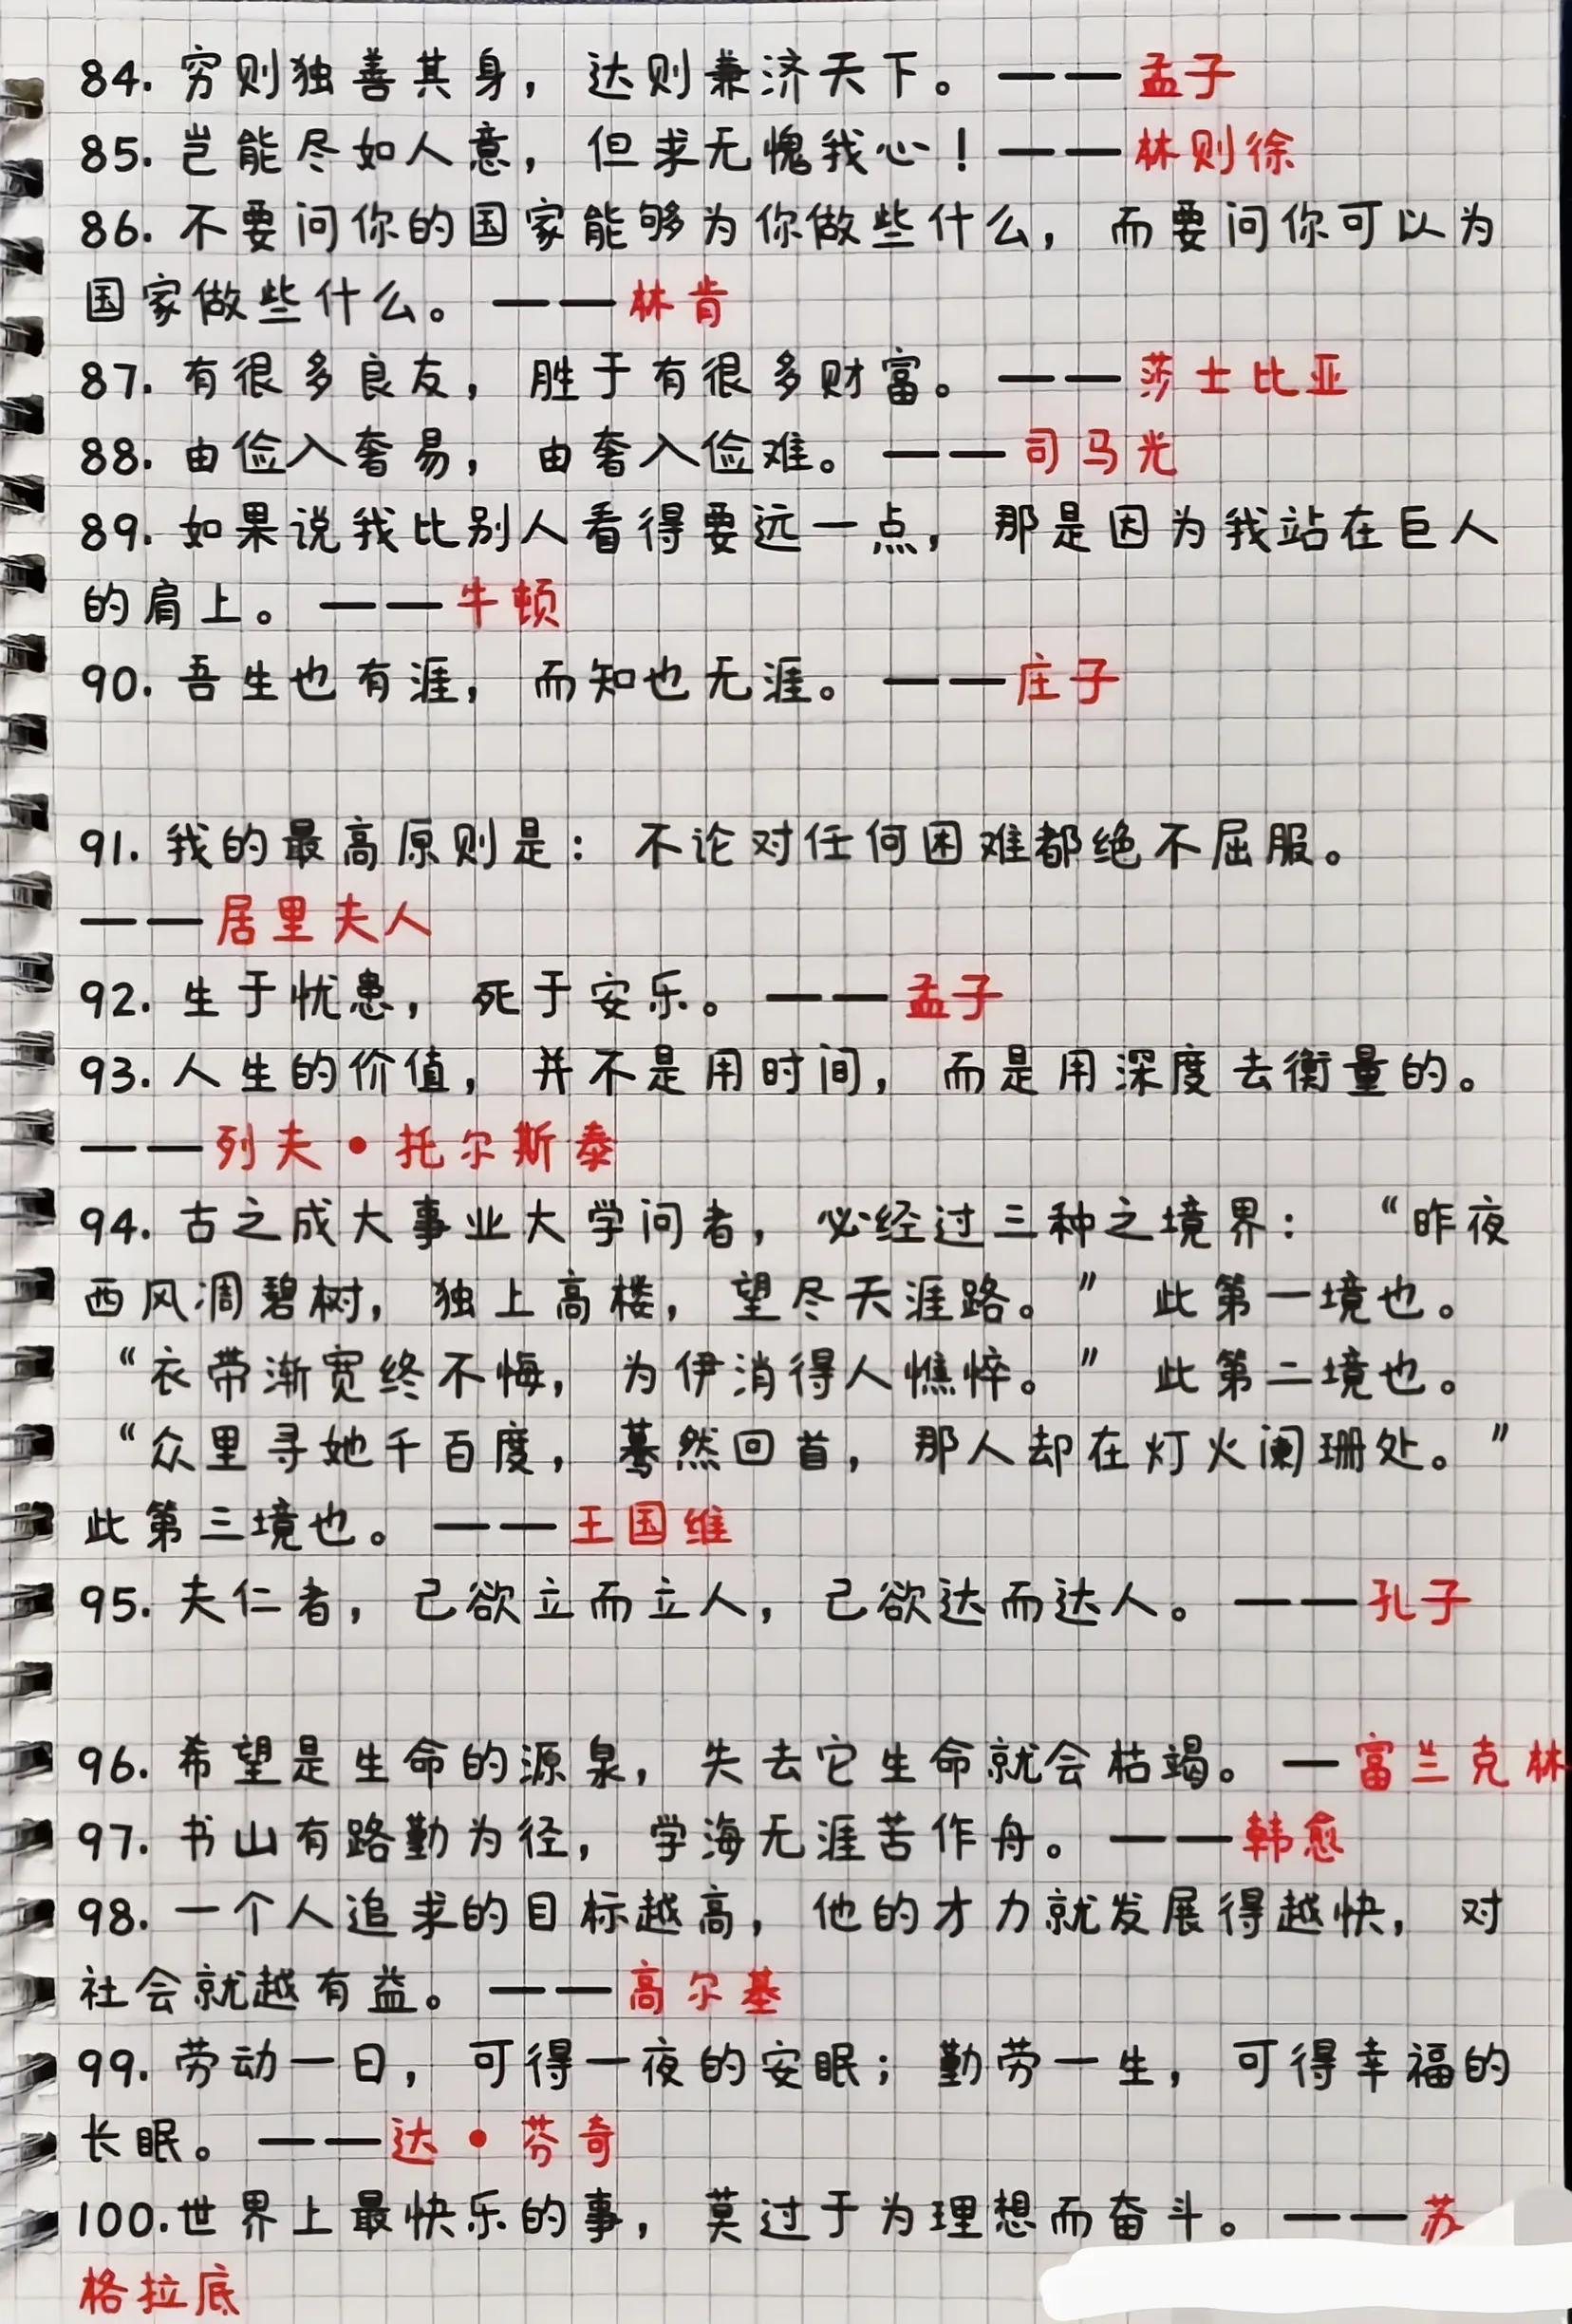 84. 穷则独善其身，达则兼济天下。——孟子
85. 岂能尽如人意，但求无愧我心！——林则徐
86. 不要问你的国家能够为你做些什么，而要问你可以为
国家做些什么。——林肯
87. 有很多良友，胜于有很多财富。——莎士比亚
88. 由俭入奢易，由奢入俭难。——司马光
89. 如果说我比别人看得要远一点，那是因为我站在巨人
的肩上。——牛顿
90. 吾生也有涯，而知也无涯。——庄子
91. 我的最高原则是：不论对任何困难都绝不屈服。
——居里夫人
92. 生于忧患，死于安乐。——孟子
93. 人生的价值，并不是用时间，而是用深度去衡量的。
——列夫•托尔斯泰
94. 古之成大事业大学问者，必经过三种之境界：“昨夜
西风凋碧树，独上高楼，望尽天涯路。”此第一境也。
“衣带渐宽终不悔，为伊消得人憔悴。”此第二境也。
“众里寻她千百度，蓦然回首，那人却在灯火阑珊处。”
此第三境也。——王国维
95. 夫仁者，己欲立而立人，己欲达而达人。——孔子
96. 希望是生命的源泉，失去它生命就会枯竭。—富兰克林
97. 书山有路勤为径，学海无涯苦作舟。——韩愈
98. 一个人追求的目标越高，他的才力就发展得越快，对
社会就越有益。——高尔基
99. 劳动一日，可得一夜的安眠；勤劳一生，可得幸福的
长眠。——达•芬奇
100.世界上最快乐的事，莫过于为理想而奋斗。——苏
格拉底